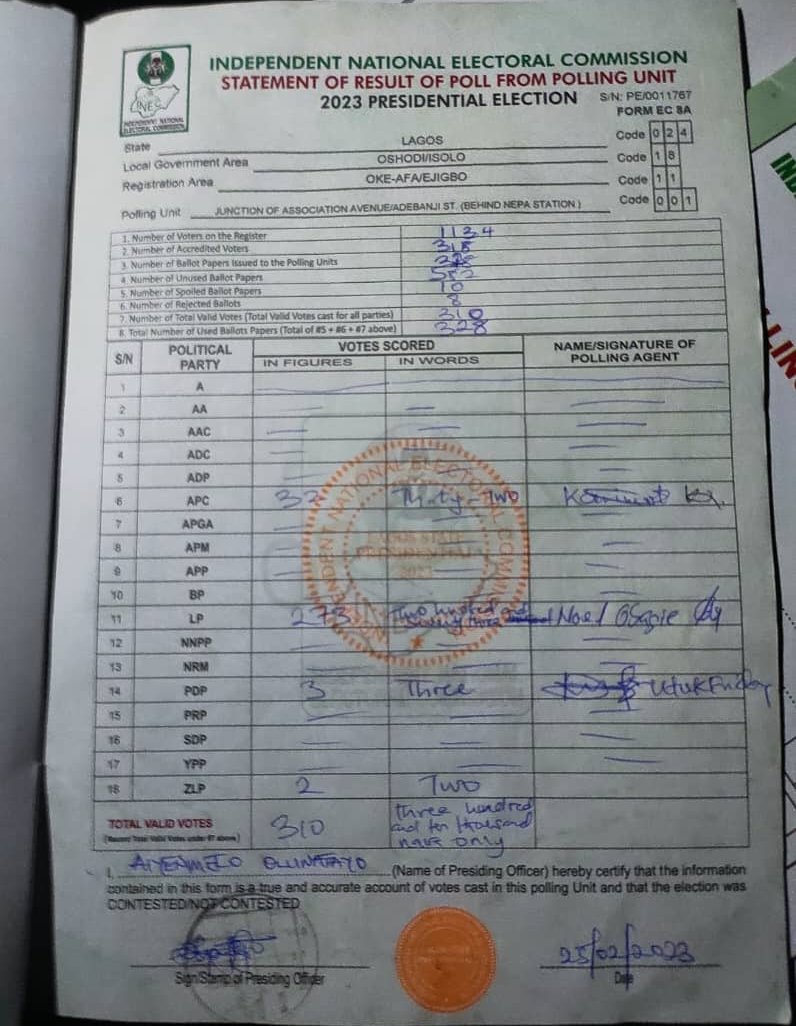 INDEPENDENT NATIONAL ELECTORAL COMMISSION
STATEMENT OF RESULT OF POLL FROM POLLING UNIT
2023 PRESIDENTIAL ELECTION S/N: PE/0011767
FORM EC 8A
INEC
INDEPENDENT NATIONAL
ELECTORAL COMMISSION
State LAGOS Code 0 2 4
Local Government Area OSHODI/ISOLO Code 1 8
Registration Area OKE-AFA/EJIGBO Code 1 1
Polling Unit JUNCTION OF ASSOCIATION AVENUE/ADEBANJI ST. (BEHIND NEPA STATION ) Code 0 0 1
1. Number of Voters on the Register 1134
2. Number of Accredited Voters 318
3. Number of Ballot Papers Issued to the Polling Units
4. Number of Unused Ballot Papers 552
5. Number of Spoiled Ballot Papers 10
6. Number of Rejected Ballots 8
7. Number of Total Valid Votes (Total Valid Votes cast for all parties) 310
8. Total Number of Used Ballots Papers (Total of #5 + #6 + #7 above) 328
S/N POLITICAL PARTY VOTES SCORED NAME/SIGNATURE OF POLLING AGENT
IN FIGURES IN WORDS
1 A
2 AA
3 AAC
4 ADC
5 ADP
6 APC 32 Thirty-Two
7 APGA
8 APM
9 APP
10 BP
11 LP 273 Two hundred and seventy three Noel Osagie
12 NNPP
13 NRM
14 PDP 3 Three Utuk Friday
15 PRP
16 SDP
17 YPP
18 ZLP 2 Two
TOTAL VALID VOTES 310 three hundred and ten thousand naira only
I, (Name of Presiding Officer) hereby certify that the information
contained in this form is a true and accurate account of votes cast in this polling Unit and that the election was
CONTESTED/NOT CONTESTED
25/02/2023
Sign/Stamp of Presiding Officer Date